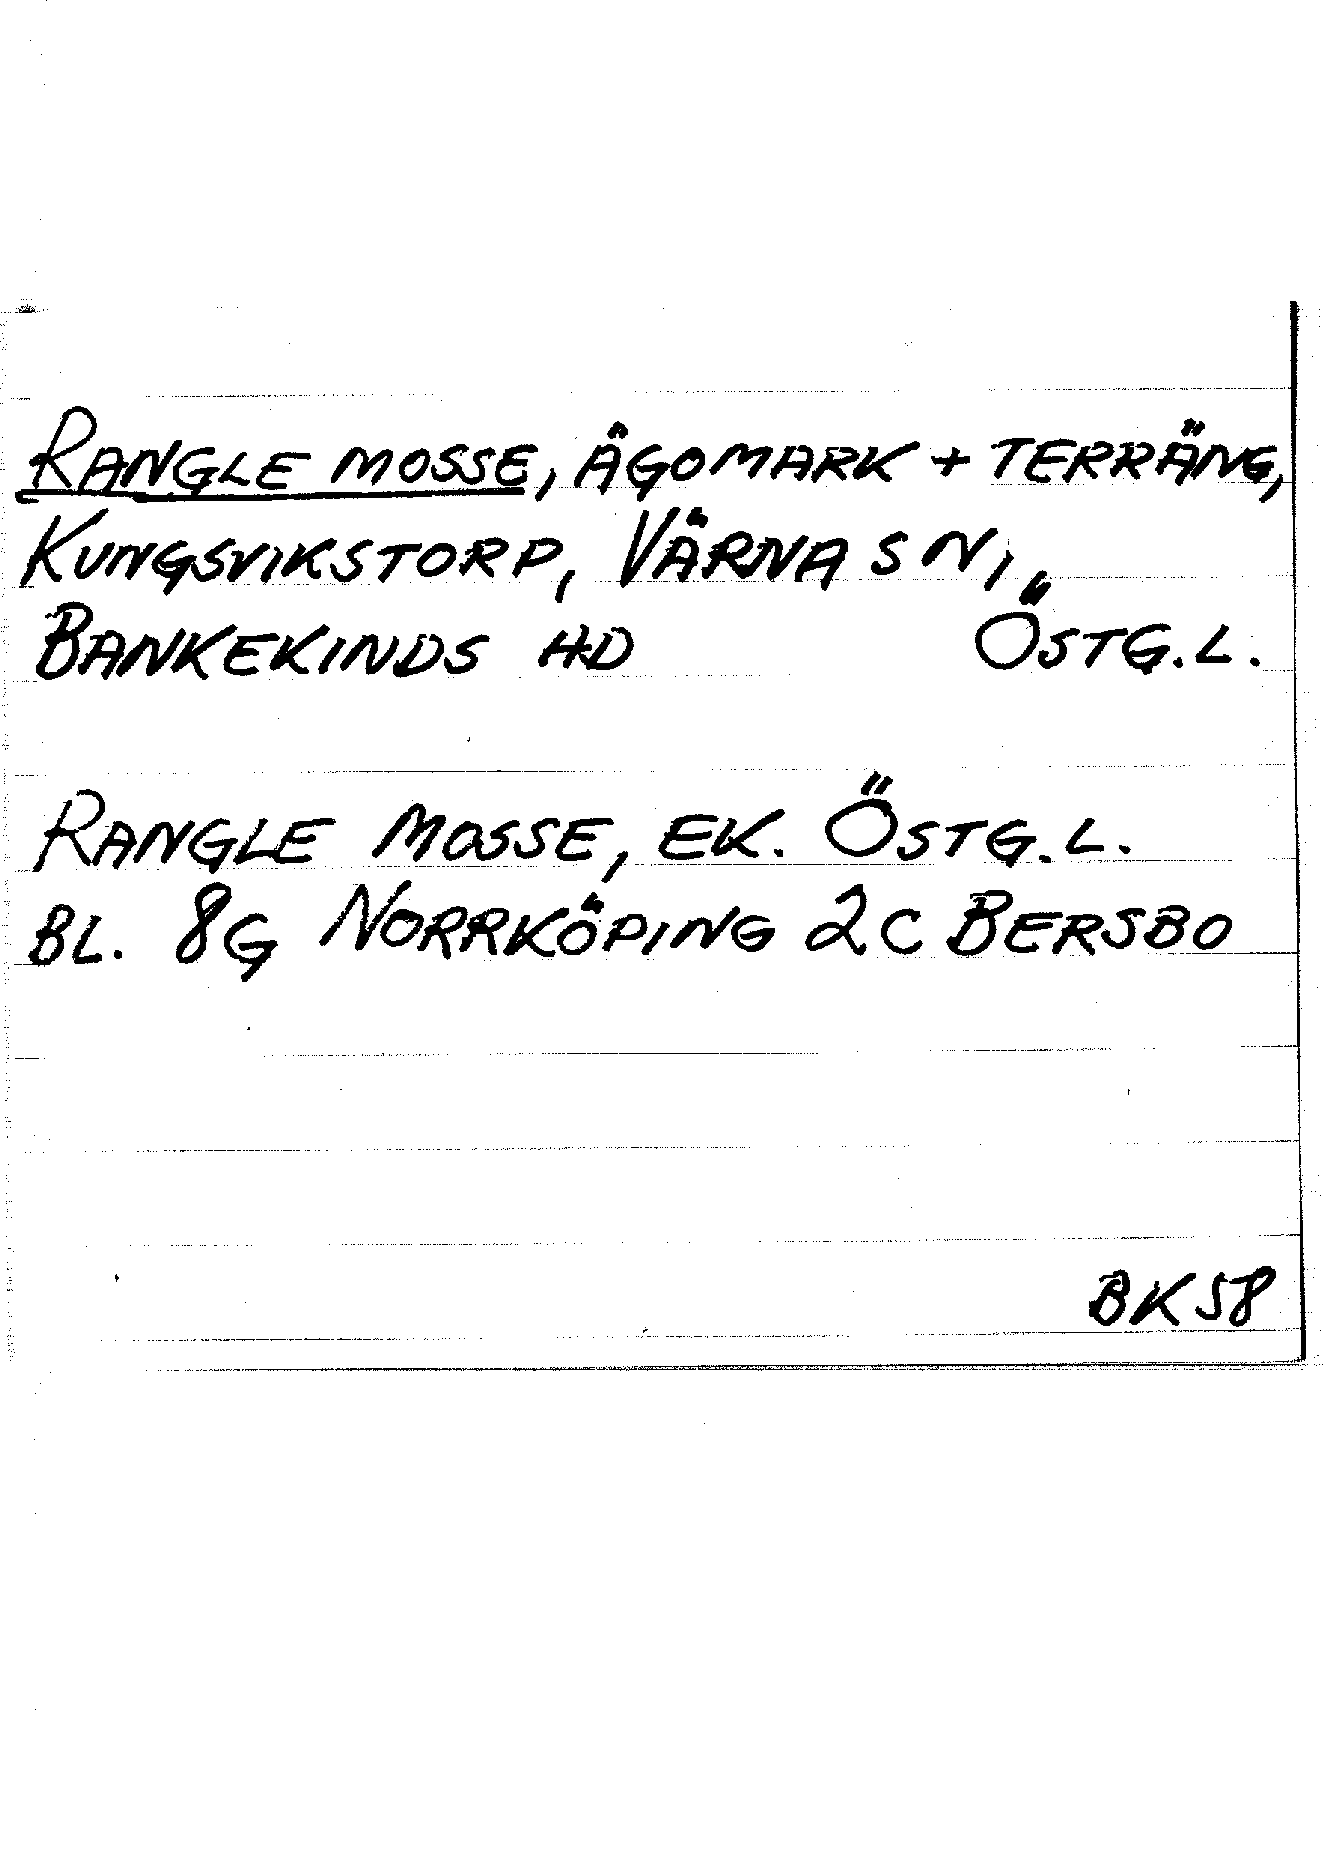 RANGLE MOSSE, ÄGOMARK + TERRÄNG,
KUNGSVIKSTORP, VÄRNA SN,
BANKEKINDS HD ÖSTG.L.
RANGLE MOSSE, EK. ÖSTG.L.
BL. 8G NORRKÖPING 2C BERSBO
BK58